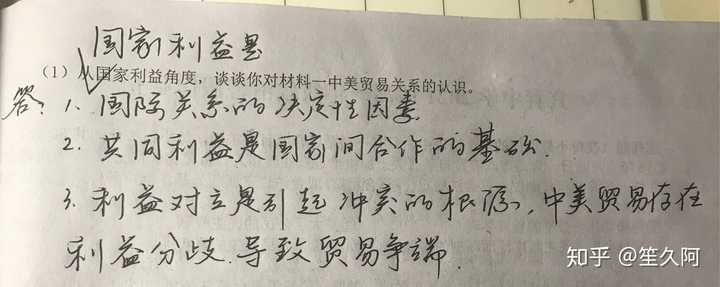 国家利益是
(1)从国家利益角度，谈谈你对材料一中美贸易关系的认识。
答：1. 国际关系的决定性因素.
2. 共同利益是国家间合作的基础.
3. 利益对立是引起冲突的根源，中美贸易存在
利益分歧.导致贸易争端.
知乎 @笙久阿